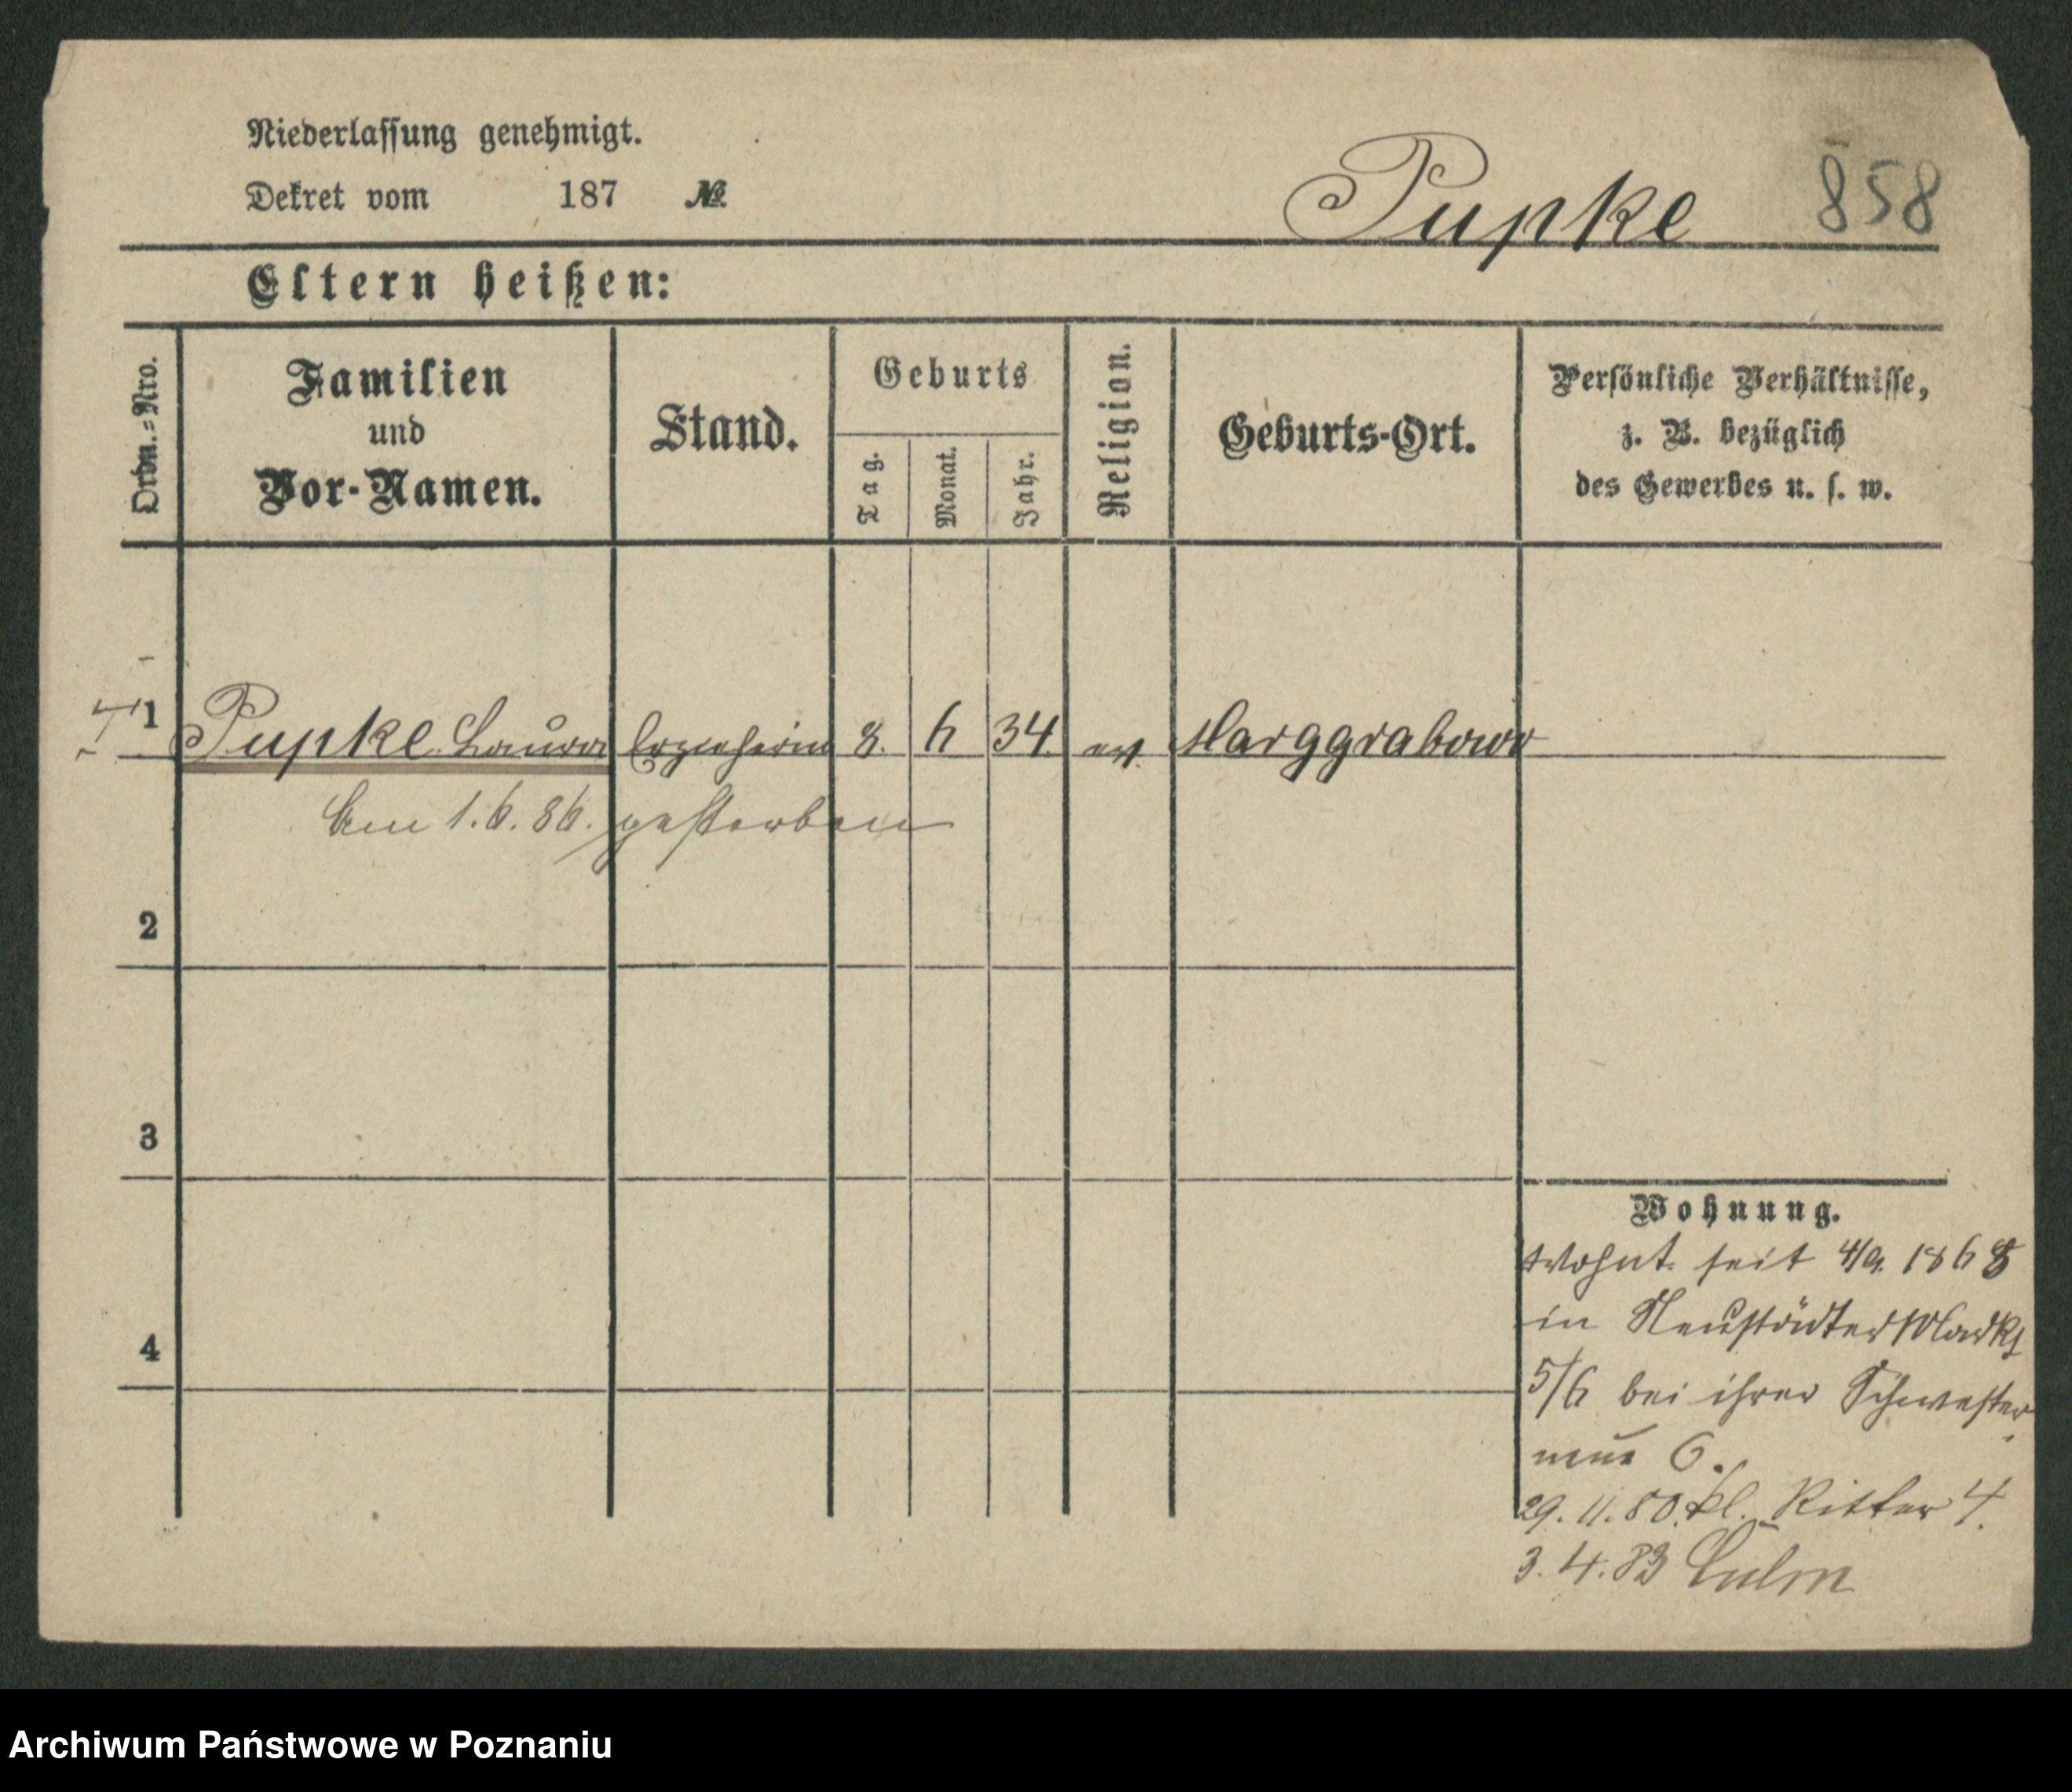 Niederlassung genehmigt.
Dekret vom 187 №
Pupke 858
Eltern heißen:
Ordn.-Nro.
Familien
und
Vor-Namen.
Stand.
Geburts
Tag.
Monat.
Jahr.
Religion.
Geburts-Ort.
Persönliche Verhältnisse,
z. B. bezüglich
des Gewerbes u. s. w.
1 Pupke Laura Erzieherin 8. 6 34. ev. Marggrabowo
Am 1.6.86. gestorben
2
3
4
Wohnung.
wohnt seit 4/9. 1868
in Neustädter Markt
5/6 bei ihrer Schwester
neue 6.
29.11.80. kl. Ritter 4.
3.4.83 Culm
Archiwum Państwowe w Poznaniu